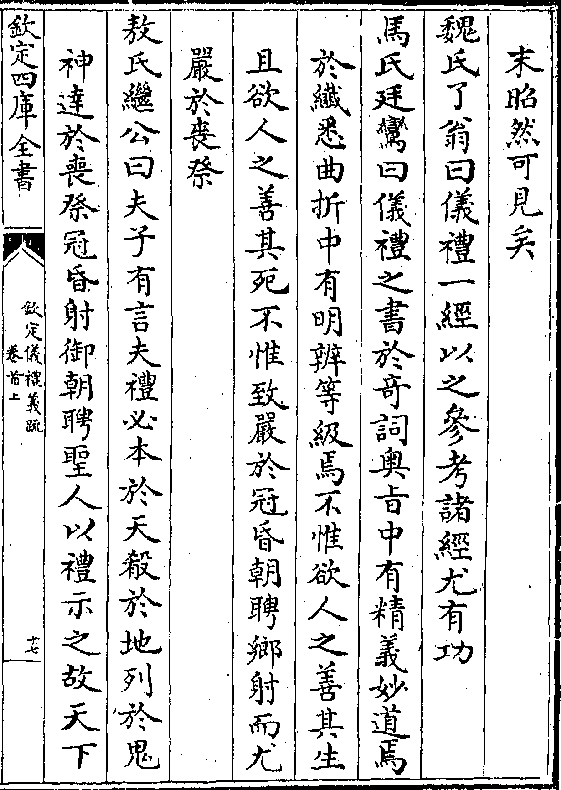 末昭然可見矣
魏氏了翁曰儀禮一經以之參考諸經尤有功
馬氏廷鸞曰儀禮之書於奇詞奥㫖中有精義妙道焉
於纎悉曲折中有明辨等級焉不惟欲人之善其生
且欲人之善其死不惟致嚴於冠昏朝聘鄉射而尤
嚴於喪祭
敖氏繼公曰夫子有言夫禮必本於天殽於地列於鬼
神達於喪祭冠昏射御朝聘聖人以禮示之故天下
欽定四庫全書
欽定儀禮義疏
卷首上
十七